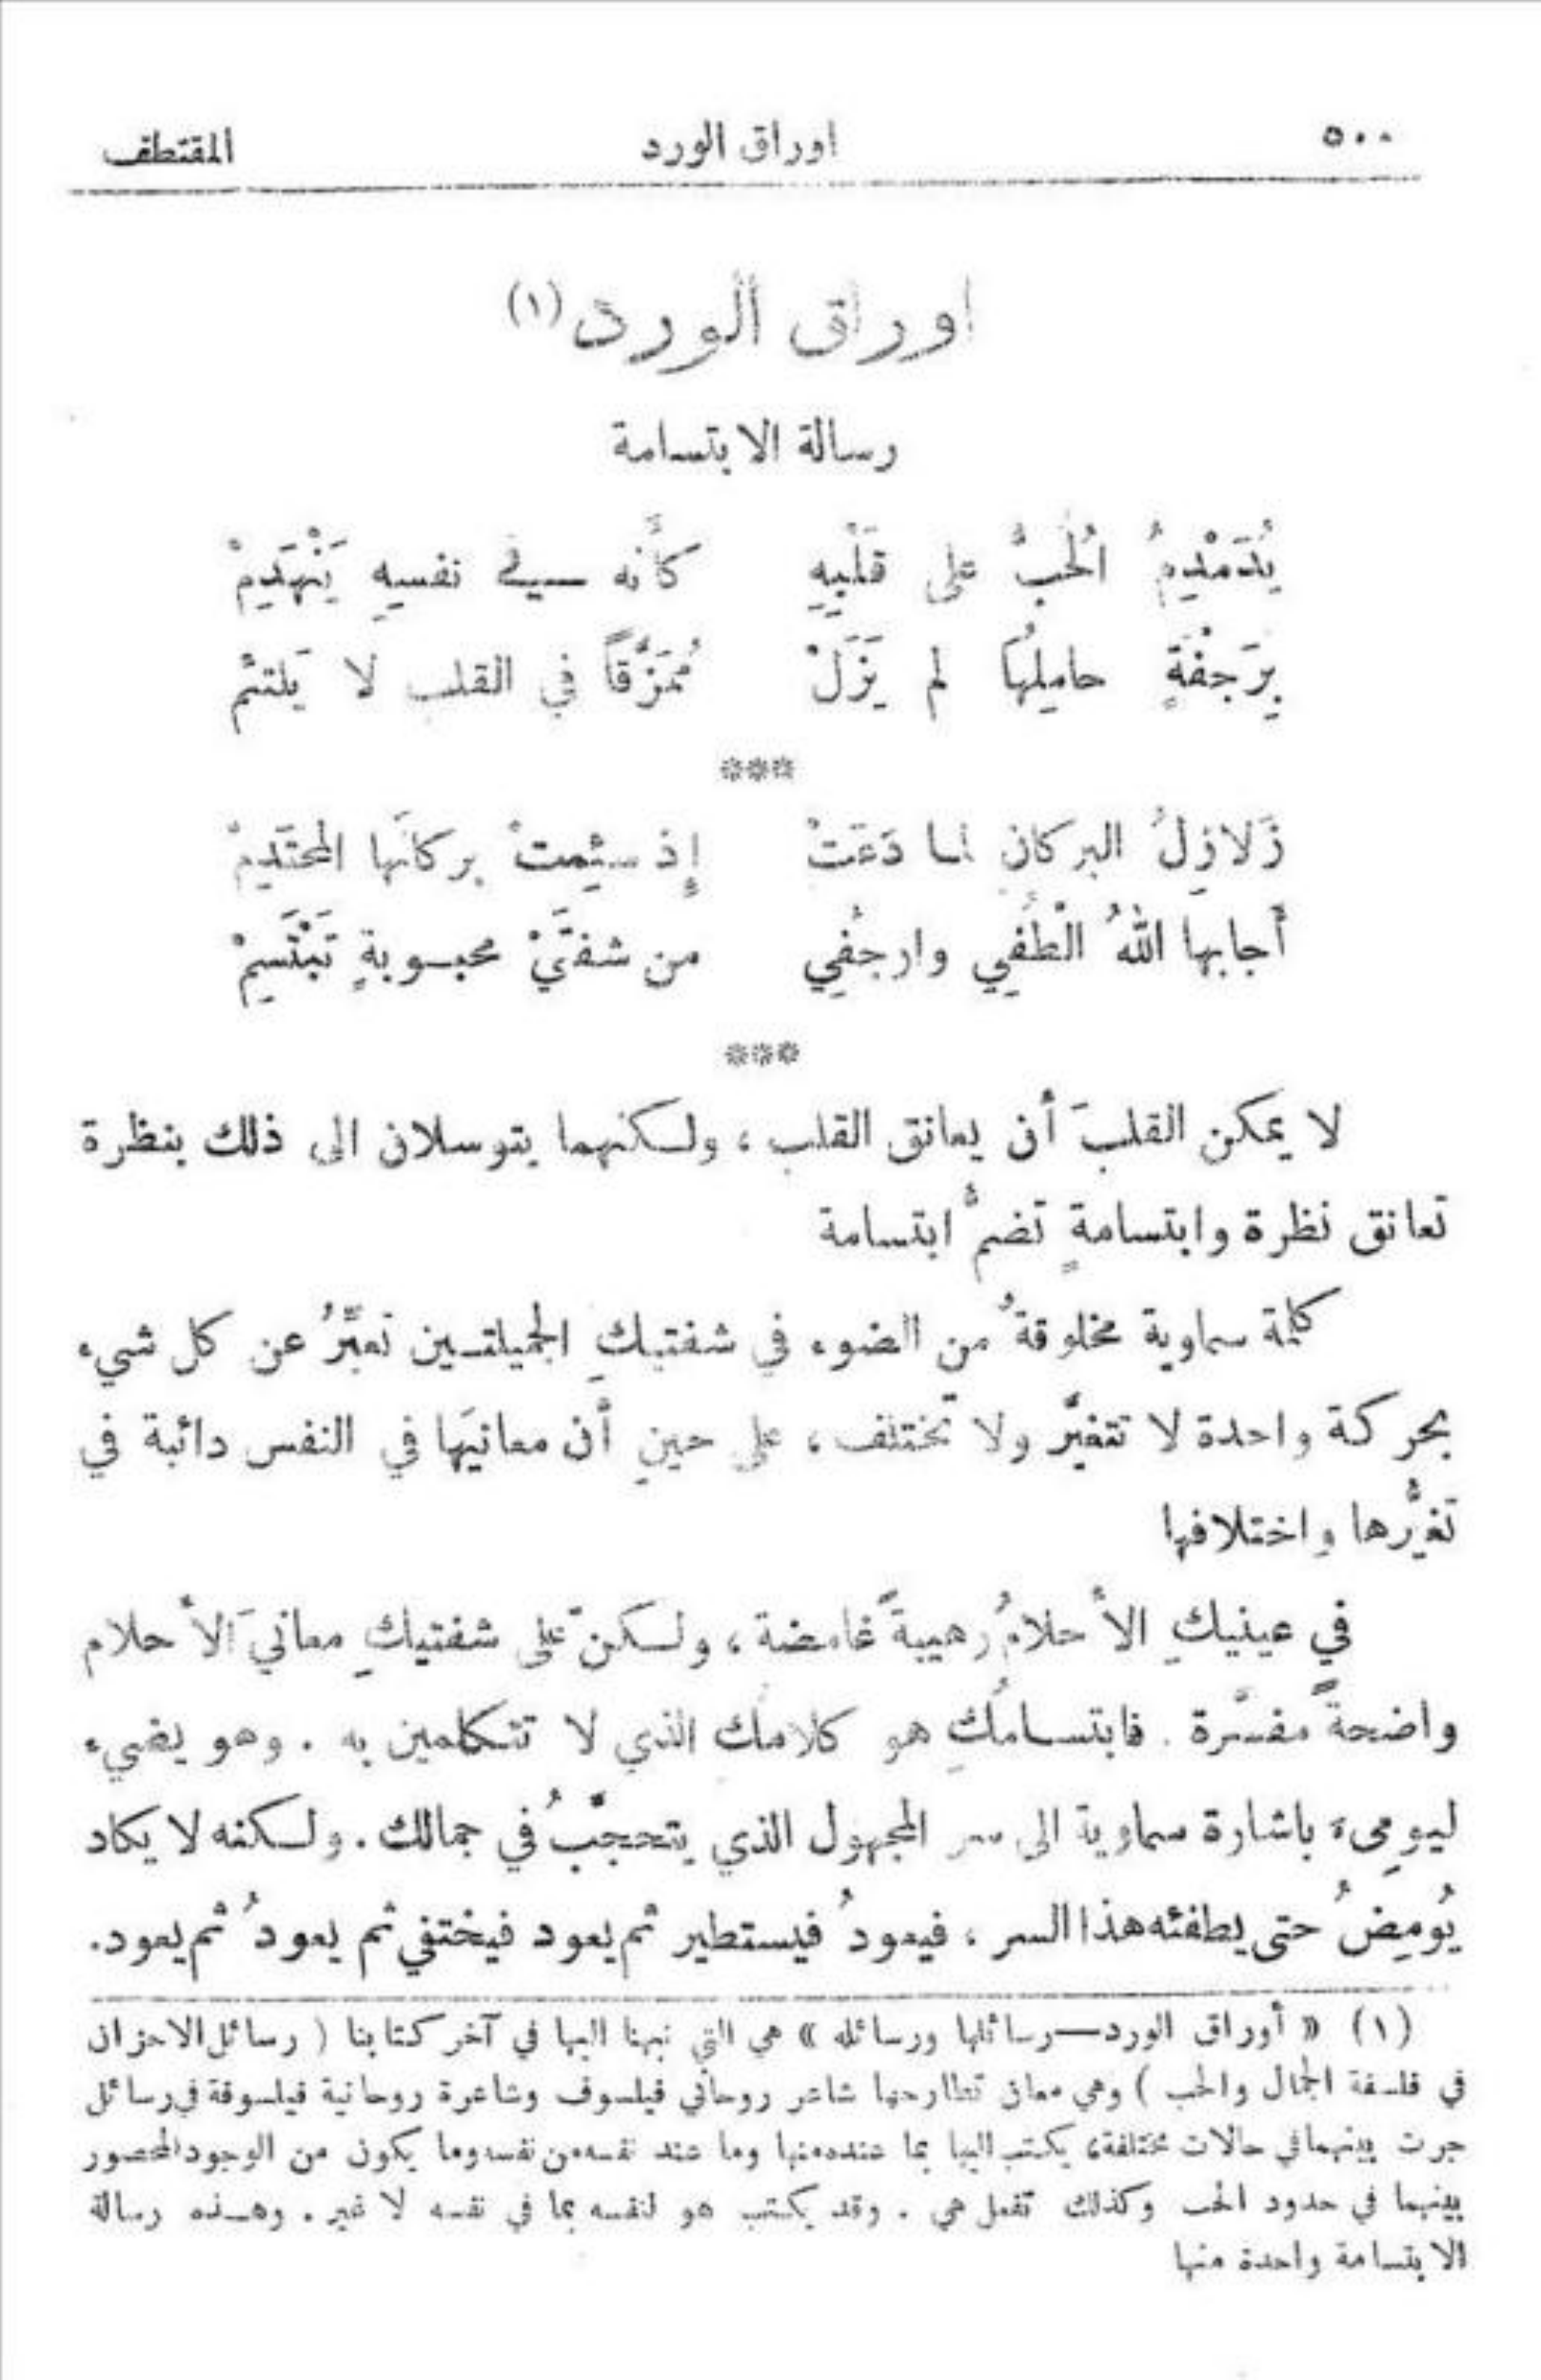 ٥٠٠ اوراق الورد المقتطف
اوراق الورد (١)
رسالة الابتسامة
يُدَمْدِمُ الُحبُّ على قَلْبِهِ كأَنه في نفسهِ يَنْهَدِمْ
بِرَجفْةٍ حامِلهُا لم يَزَلْ مُمَزَّقاً في القلب لا يَلتئم
***
زَلازِلُ البركان لما دَعَتْ إِذ سئِمتْ بركانَها المحتَدِمْ
أَجابها اللهُ الْطُفي وارجُفي من شفتَيْ محبوبةٍ تَبْتَسِمْ
***
لا يمكن القلبَ أن يعانق القلب ، ولكنهما يتوسلان الى ذلك بنظرة
تعانق نظرة وابتسامةٍ تضمُّ ابتسامة
كلمة سماوية مخلوقةُ من الضوء في شفتيكِ الجميلتين تعبِّرُ عن كل شيء
بحركة واحدة لا تتغيَّر ولا تختلف ، على حينِ أَن معانيَها في النفس دائبة في
تغيُّرها واختلافها
في عينيكِ الأحلامُ رهيبةً غامضة ، ولكنّ على شفتيكِ معانيَ الأحلام
واضحةً مفسَّرة . فابتسامُكِ هو كلامك الذي لا تتكلمين به . وهو يضيء
ليومِىء باشارة سماوية الى سر المجهول الذي يتحجَّبُ في جمالك . ولكنه لا يكاد
يُومِضُ حتى يطفئه هذا السر ، فيعودُ فيستطير ثم يعود فيختفي ثم يعودُ ثم يعود.
(١) « أوراق الورد—رسائلها ورسائله » هي التي نبهنا اليها في آخر كتابنا ( رسائل الاحزان
في فلسفة الجمال والحب ) وهي معان تطارحها شاعر روحاني فيلسوف وشاعرة روحانية فيلسوفة في رسائل
جرت بينهما في حالات مختلفة، يكتب اليها بما عنده منها وما عند نفسه من نفسه وما يكون من الوجود المحصور
بينهما في حدود الحب وكذلك تفعل هي . وقد يكتب هو لنفسه بما في نفسه لا غير . وهذه رسالة
الابتسامة واحدة منها